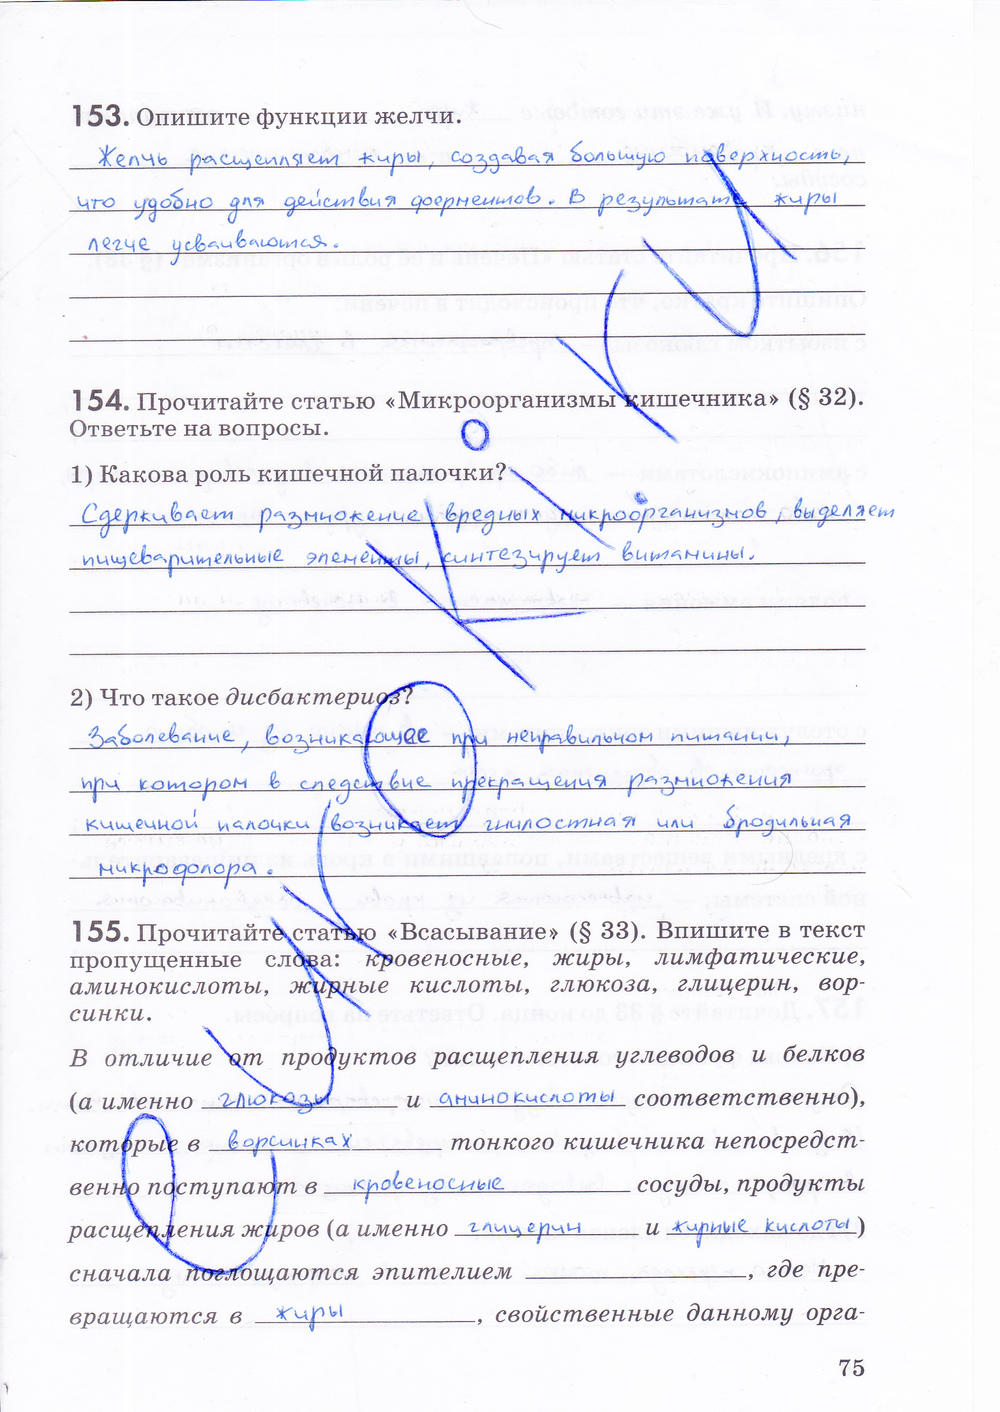 153. Опишите функции желчи.
Желчь расщепляет жиры, создавая большую поверхность,
что удобно для действия ферментов. В результате жиры
легче усваиваются.
154. Прочитайте статью «Микроорганизмы кишечника» (§ 32).
Ответьте на вопросы.
1) Какова роль кишечной палочки?
Сдерживает размножение вредных микроорганизмов, выделяет
пищеварительные элементы, синтезирует витамины.
2) Что такое дисбактериоз?
Заболевание, возникающее при неправильном питании,
при котором в следствие прекращения размножения
кишечной палочки возникает гнилостная или бродильная
микрофлора.
155. Прочитайте статью «Всасывание» (§ 33). Впишите в текст
пропущенные слова: кровеносные, жиры, лимфатические,
аминокислоты, жирные кислоты, глюкоза, глицерин, вор-
синки.
В отличие от продуктов расщепления углеводов и белков
(а именно глюкозы и аминокислоты соответственно),
которые в ворсинках тонкого кишечника непосредст-
венно поступают в кровеносные сосуды, продукты
расщепления жиров (а именно глицерин и жирные кислоты)
сначала поглощаются эпителием , где пре-
вращаются в жиры , свойственные данному орга-
75